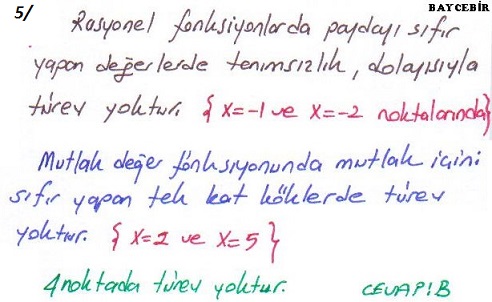 5/
BAYCEBİR
Rasyonel fonksiyonlarda paydayı sıfır
yapan değerlerde tanımsızlık, dolayısıyla
türev yoktur. { x=-1 ve x=-2 noktalarında}
Mutlak değer fonksiyonunda mutlak içini
sıfır yapan tek kat köklerde türev
yoktur. { x=2 ve x=5 }
4 noktada türev yoktur. CEVAP!B